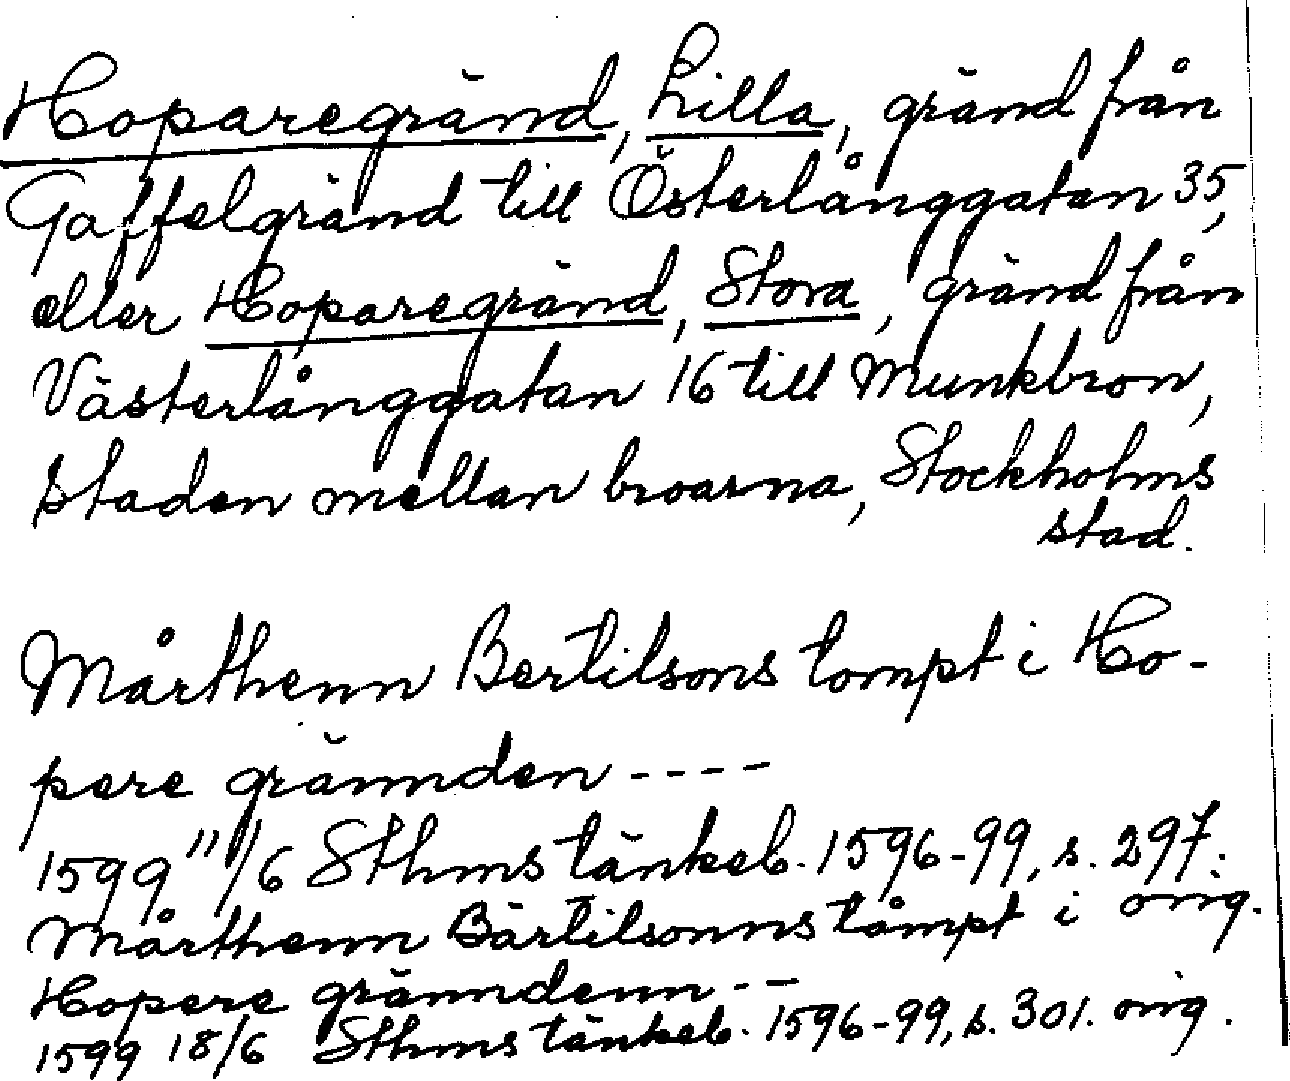 Hoparegränd, Lilla, gränd från
Gaffelgränd till Österlånggatan 35,
eller Hoparegränd, Stora, gränd från
Västerlånggatan 16 till Munkbron,
staden mellan broarna, Stockholms
stad.
Mårthenn Bertilsons tompt i Ho-
pere grännden ----
1599 11/6 Sthms tänkeb. 1596-99, s. 297.
orig.
Mårthenn Bärtilsonns tåmpt i
Hopere gränndenn --
1599 18/6 Sthms tänkeb. 1596-99, s. 301. orig.